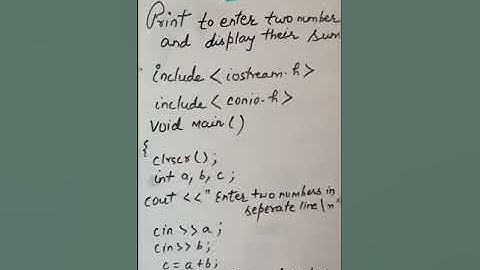 Print to enter two number
and display their sum
include <iostream.h>
include <conio.h>
Void main()
{
clrscr();
int a, b, c;
cout << "Enter two numbers in
seperate line \n"
cin >> a;
cin >> b;
c = a+b;